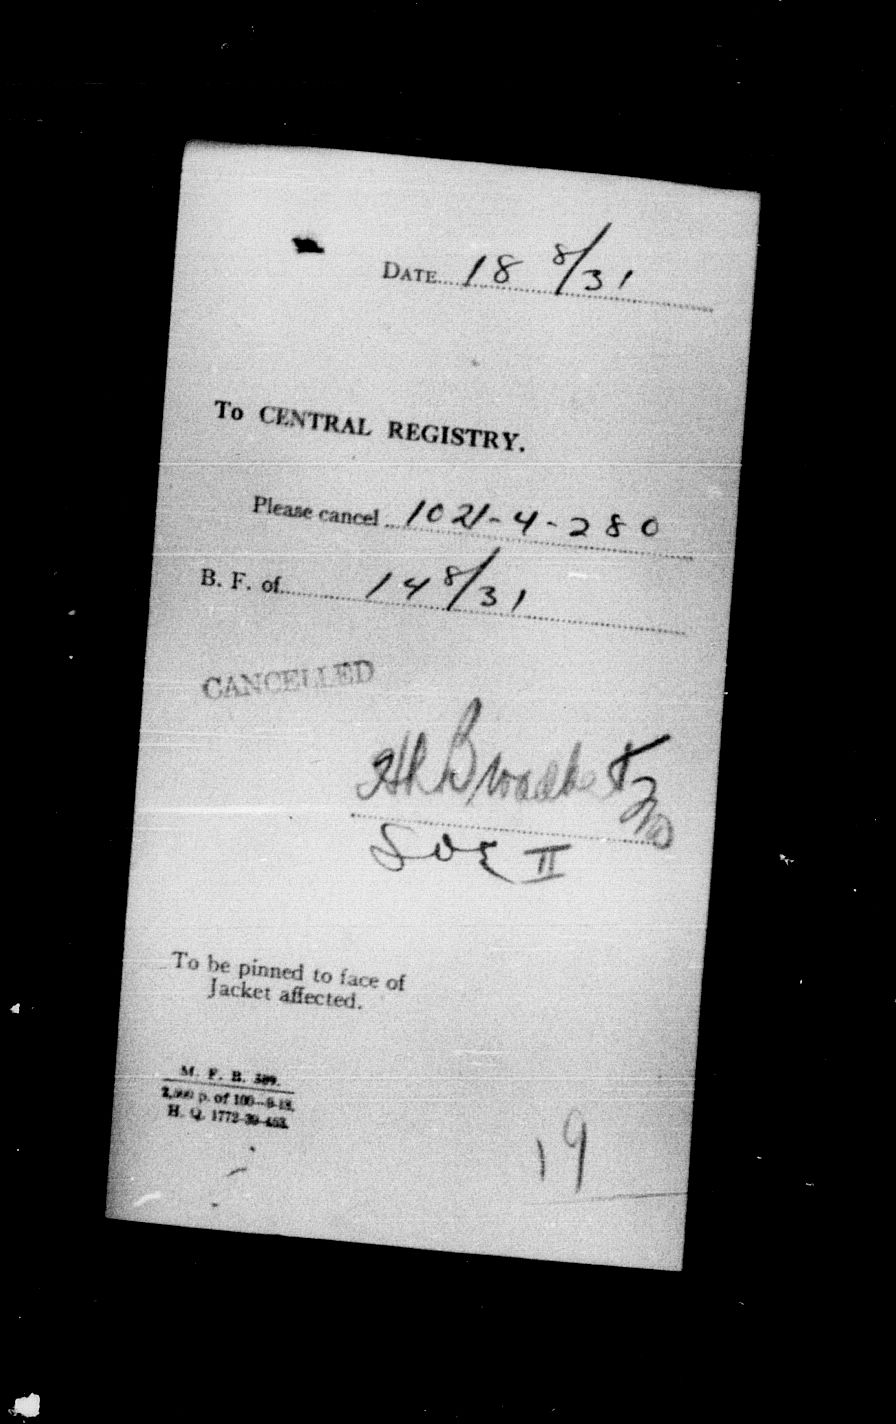 DATE 18 8/31
To CENTRAL REGISTRY.
Please cancel 1021-4-280
B. F. of 14 8/31
CANCELLED
II
To be pinned to face of
Jacket affected.
M. F. B. 389.
p. of 100
H. Q. 1772-39-
19